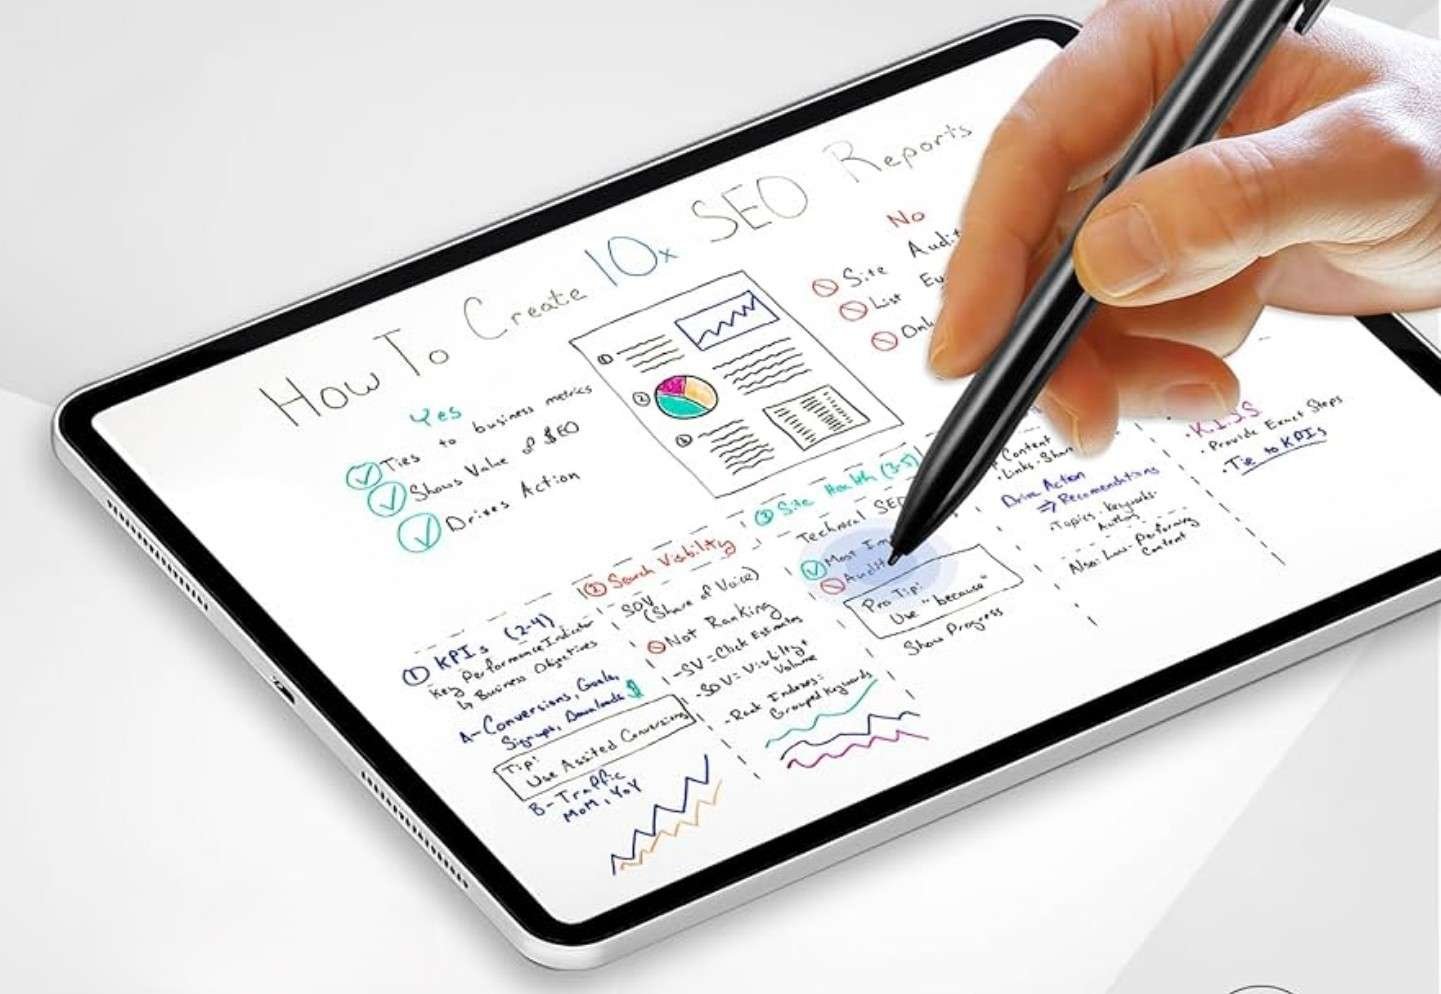 How To Create 10x SEO Reports
Yes
Ties to business metrics
Shows Value of SEO
Drives Action
①
②
③
No
Site
List
① KPIs (2-4)
Key Performance Indicator
↳ Business Objectives
A-Conversions, Goals,
Signups, Downloads $
Tip:
Use Assited Conversions
B-Traffic
MoM, YoY
② Search Visibility
SOV
(Share of Voice)
Not Ranking
-SV=Click Estimates
-SOV=Visibility+
Volume
-Rank Indexes=
Grouped Keywords
③ Site Health (3-5)
Technical SEO
Most
Audit
Pro Tip:
Use "because"
Show Progress
Content
·Links·
Drive Action
⇒Recomendations
·Topics·Keywords·
Authors
Also: Low-Performing
Content
·K.I.S.S
·Provide Exact Steps
·Tie to KPIs